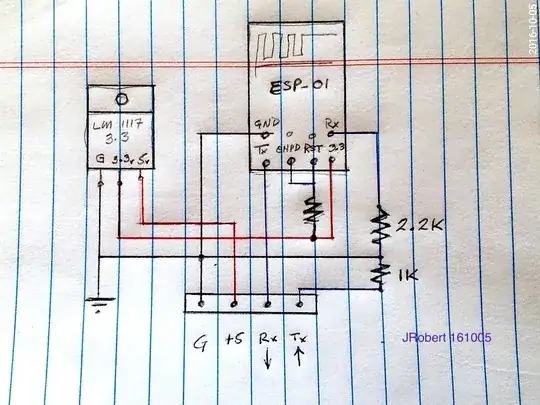 2016-10-05
ESP-01
LM-1117
3.3
G 3.3v 5v
GND Rx
Tx CHPD RST 3.3
2.2K
1K
G +5 Rx Tx
JRobert 161005